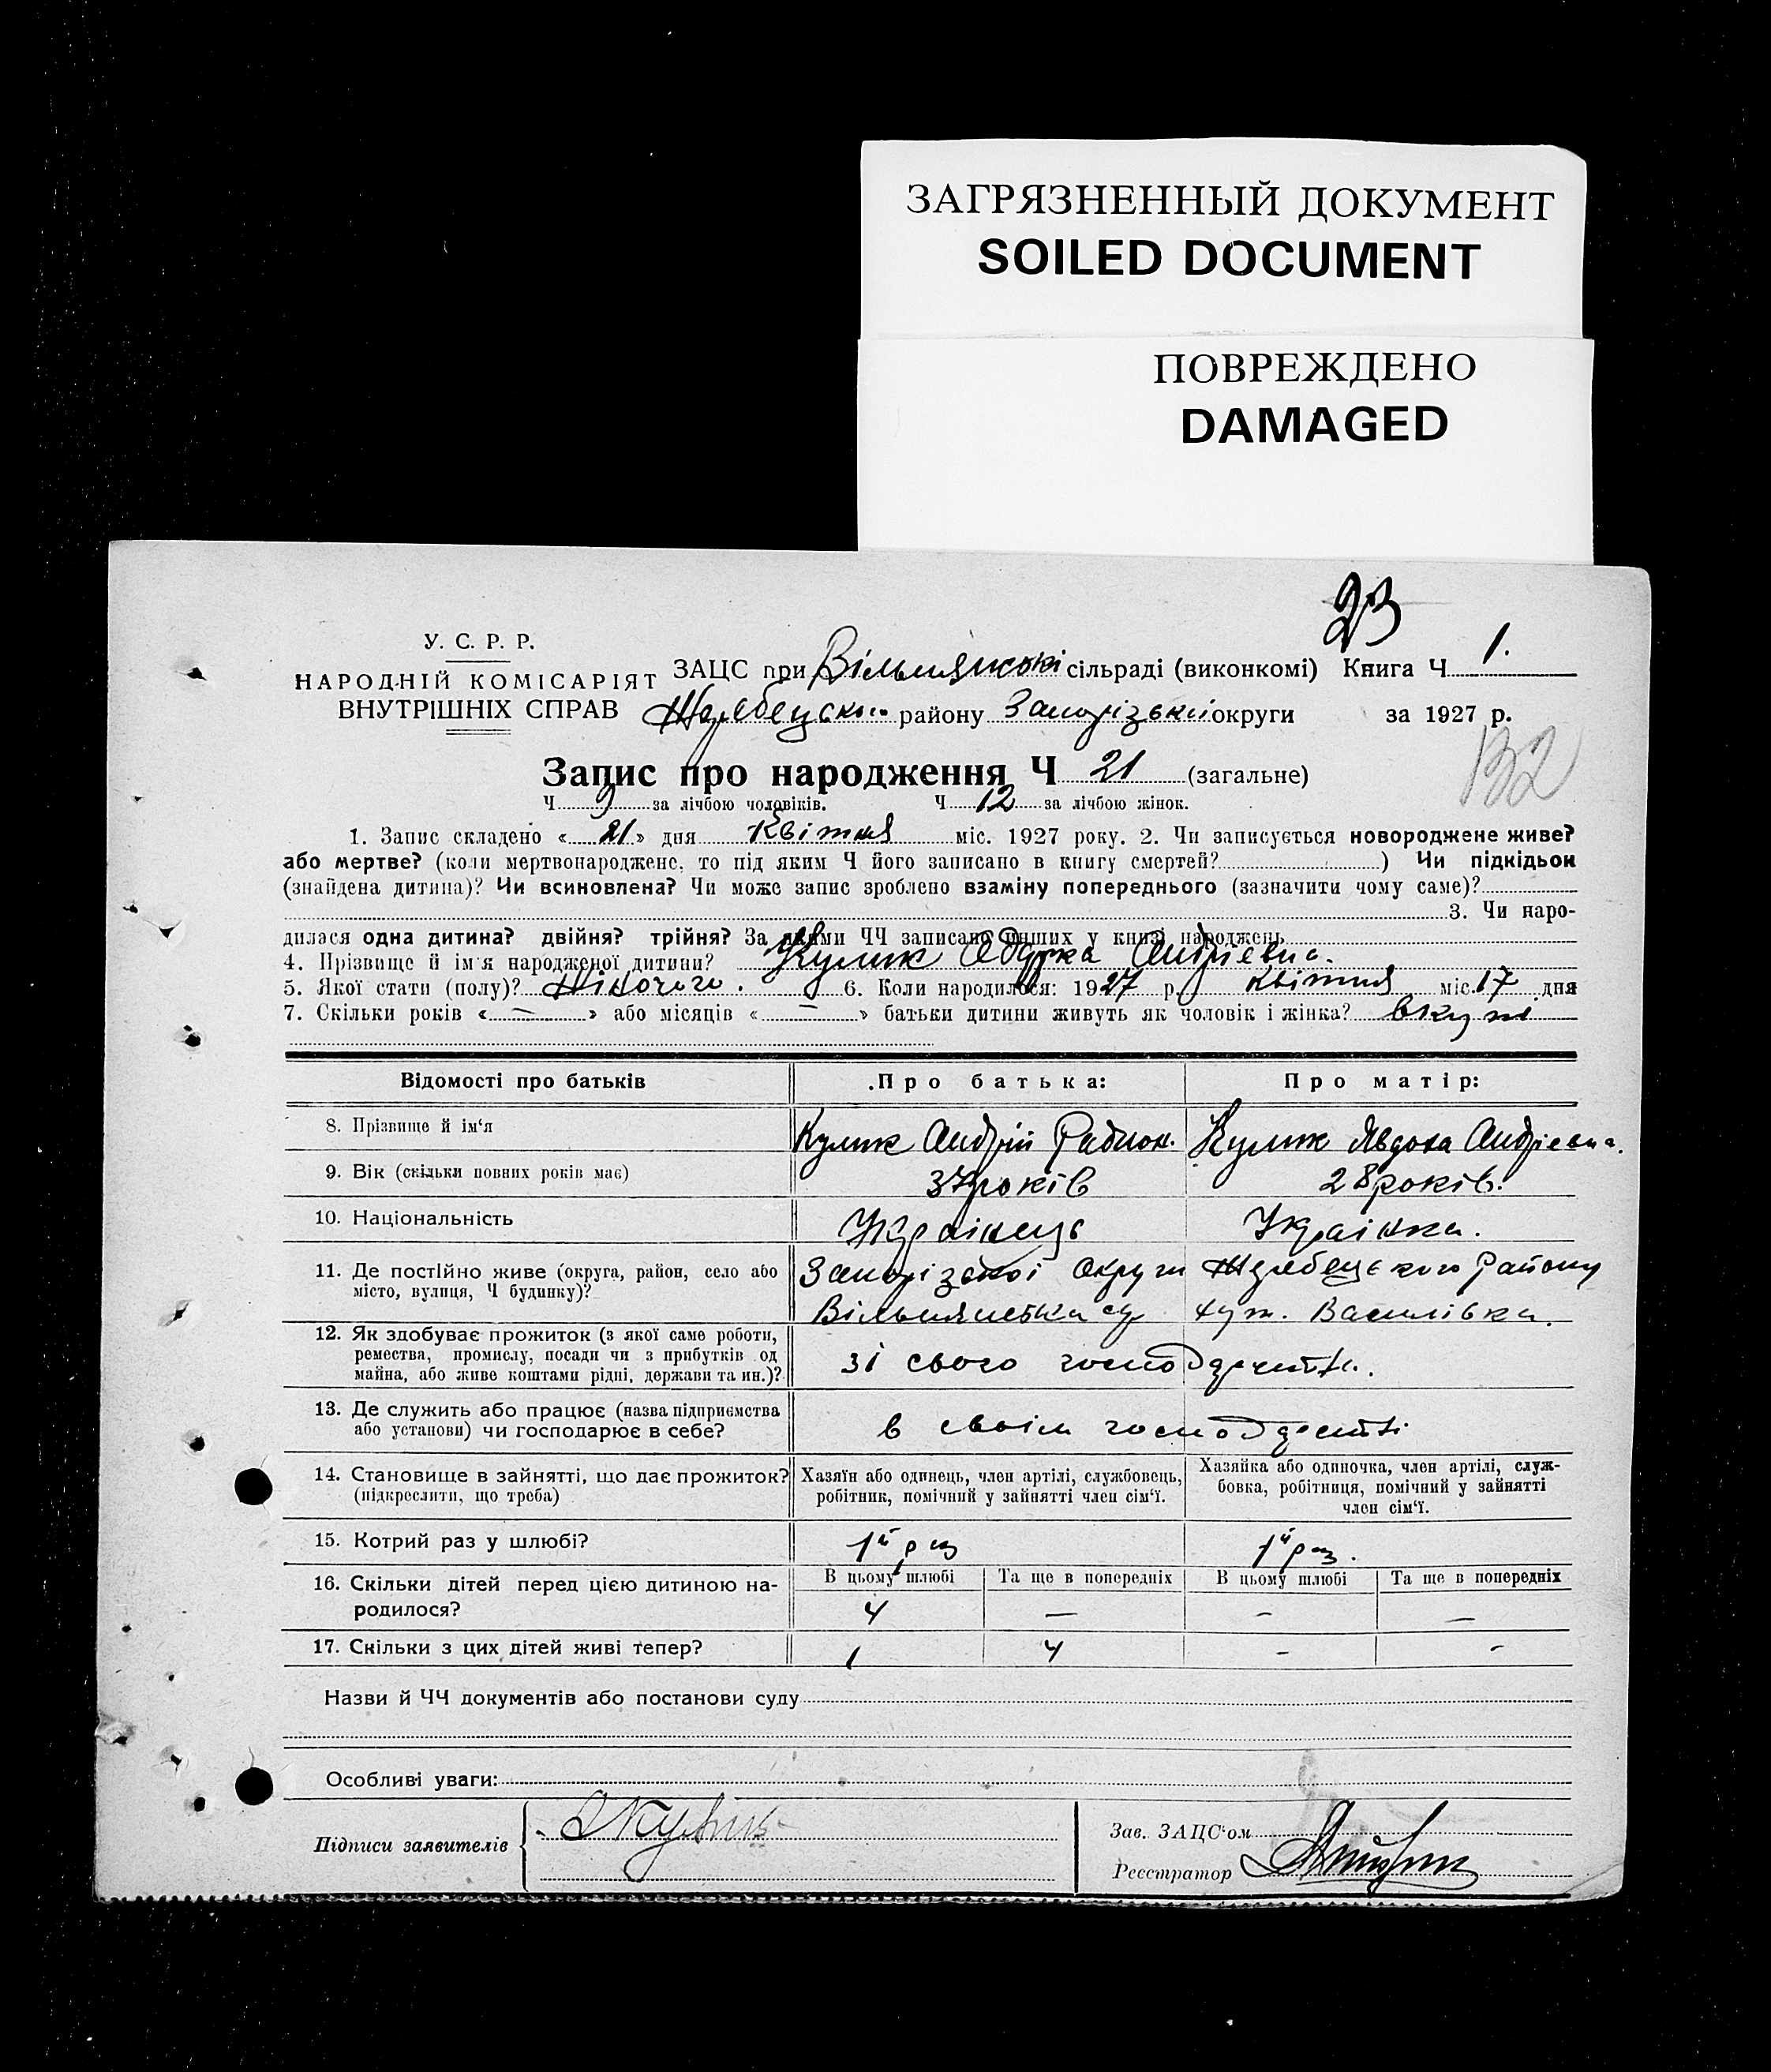 ЗАГРЯЗНЕННЫЙ ДОКУМЕНТ
SOILED DOCUMENT
ПОВРЕЖДЕНО
DAMAGED
23
У. С. Р. Р.
НАРОДНІЙ КОМІСАРІЯТ
ВНУТРІШНІХ СПРАВ
ЗАЦС при Вільнянські сільраді (виконкомі) Книга Ч 1.
Жеребецьк району Запорізької округи за 1927 р.
132
Запис про народження Ч 21 (загальне)
Ч 9 за лічбою чоловіків. Ч 12 за лічбою жінок.
1. Запис складено « 21 » дня Квітня міс. 1927 року. 2. Чи записується новороджене живе?
або мертве? (коли мертвонароджене, то під яким Ч його записано в книгу смертей? ) Чи підкідьок
(знайдена дитина)? Чи всиновлена? Чи може запис зроблено взаміну попереднього (зазначити чому саме)?
3. Чи наро-
дилася одна дитина? двійня? трійня? За якими ЧЧ записано инших у книзі народжень
4. Прізвище й ім'я народженої дитини? Кулик Андріевна.
5. Якої стати (полу)? Жіночого. 6. Коли народилося: 1927 р. Квітня міс. 17 дня
7. Скільки років « — » або місяців « — » батьки дитини живуть як чоловік і жінка? вкупі
Відомості про батьків
Про батька:
Про матір:
8. Прізвище й ім'я
Кулик Андрій Радион.
Кулик Явдоха Андріевна.
9. Вік (скільки повних років має)
37 років
28 років.
10. Національність
Українець
Українка.
11. Де постійно живе (округа, район, село або
місто, вулиця, Ч будинку)?
Запорізської Округи Жеребецского Району
Вільнянська с/р хут. Василівка.
12. Як здобуває прожиток (з якої саме роботи,
ремества, промислу, посади чи з прибутків од
майна, або живе коштами рідні, держави та ин.)?
зі свого господарства.
13. Де служить або працює (назва підприємства
або установи) чи господарює в себе?
в своім господарстві
14. Становище в зайнятті, що дає прожиток?
(підкреслити, що треба)
Хазяїн або одинець, член артілі, службовець,
робітник, помічний у зайнятті член сім'ї.
Хазяйка або одиночка, член артілі, служ-
бовка, робітниця, помічний у зайнятті
член сім'ї.
15. Котрий раз у шлюбі?
1й раз
1й раз.
16. Скільки дітей перед цією дитиною на-
родилося?
В цьому шлюбі
Та ще в попередніх
В цьому шлюбі
Та ще в попередніх
4 — — —
17. Скільки з цих дітей живі тепер?
1 4 - -
Назви й ЧЧ документів або постанови суду
Особливі уваги:
Підписи заявителів
Кулик
Зав. ЗАЦС'ом
Реєстратор